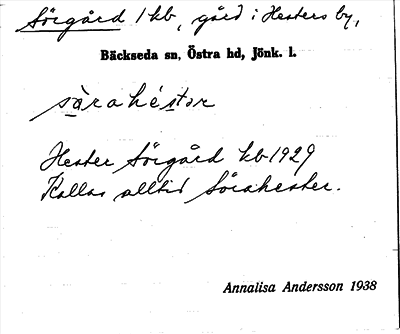 Sörgård 1 kb, gård i Hesters by,
Bäckseda sn, Östra hd, Jönk. l.
sàrahéstơr
Hester Sörgård kb 1929
Kallas alltid Sörahester.
Annalisa Andersson 1938